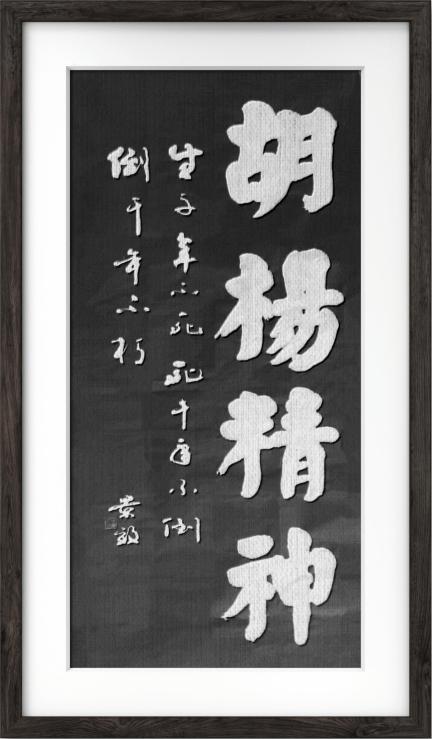 胡楊精神
生千年不死死千年不倒
倒千年不朽